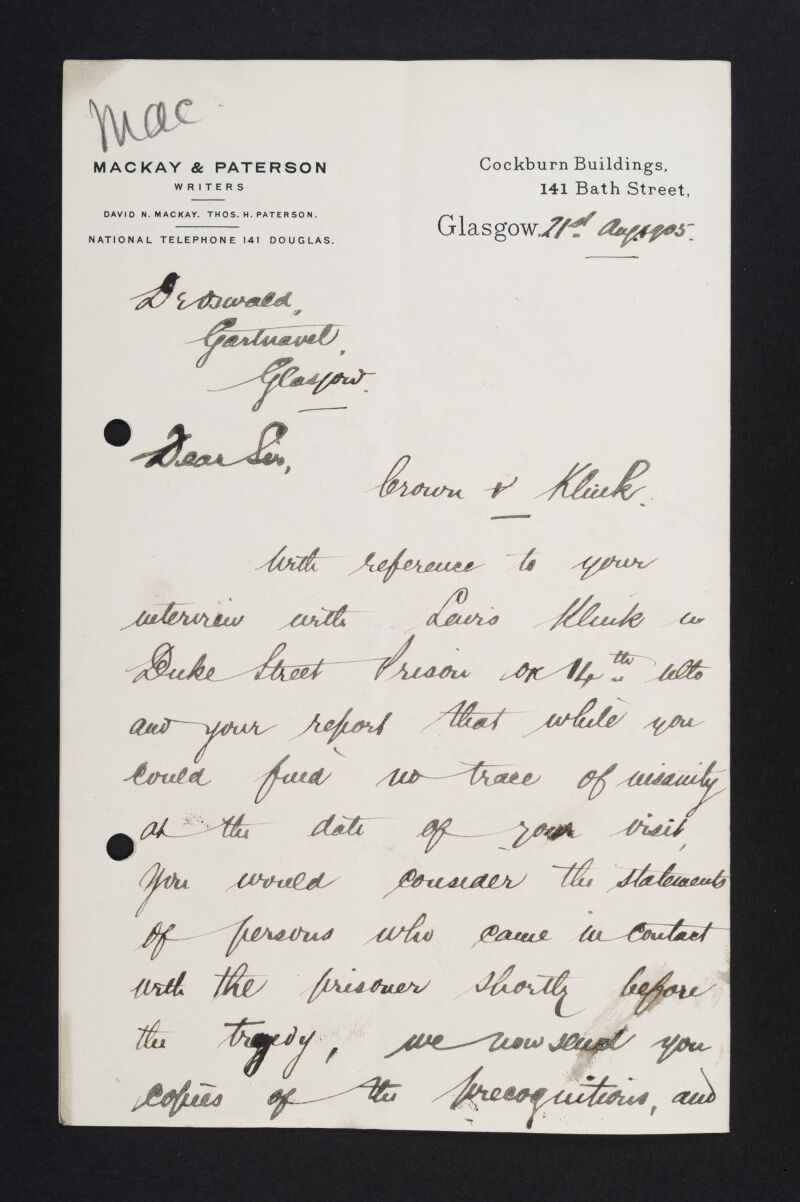 Mac
MACKAY & PATERSON
WRITERS
DAVID N. MACKAY. THOS. H. PATERSON.
NATIONAL TELEPHONE 141 DOUGLAS.
Cockburn Buildings,
141 Bath Street,
Glasgow, 21st Aug. 1905.
Dr Oswald,
Gartnavel,
Glasgow.
Dear Sir,
Crown v Klink.
With reference to your
interview with Lewis Klink in
Duke Street Prison on 14th ulto
and your report that while you
could find no trace of insanity
at the date of your visit,
you would consider the statements
of persons who came in contact
with the prisoner shortly before
the tragedy, we now send you
copies of the precognitions, and